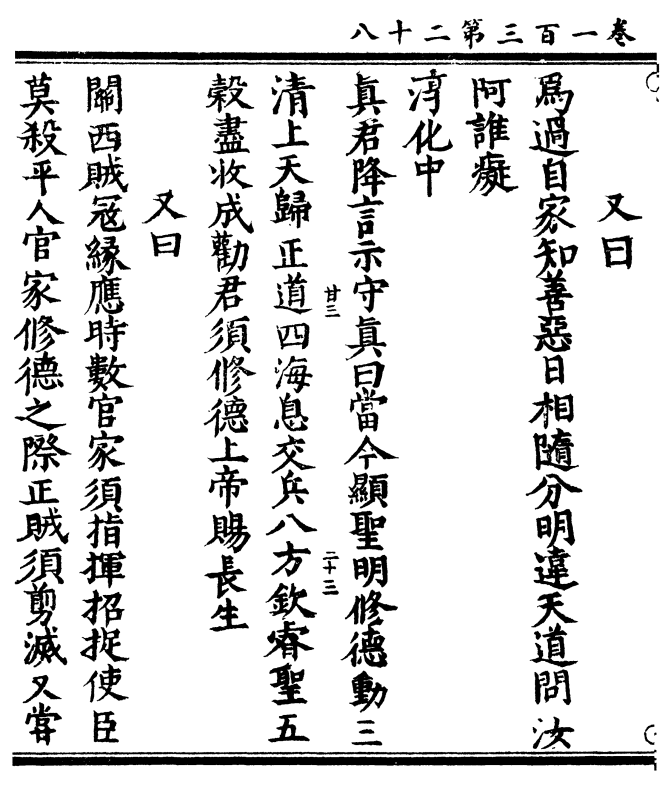 八十二第三百一卷
又曰
爲過自家知善惡日相隨分明違天道問汝
阿誰癡
淳化中
眞君降言示守眞曰當今顯聖明修德動三
廿三
二十三
清上天歸正道四海息交兵八方欽睿聖五
穀盡收成勸君須修德上帝賜長生
又曰
關西賊冦緣應時數官家須指揮招捉使臣
莫殺平人官家修德之際正賊須剪滅又嘗